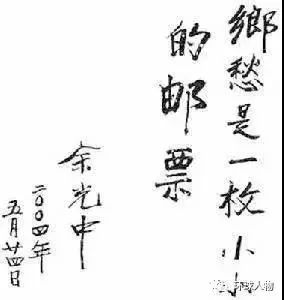 鄉愁是一枚小小
的邮票
余光中
二〇〇四年
五月廿四日
环球人物